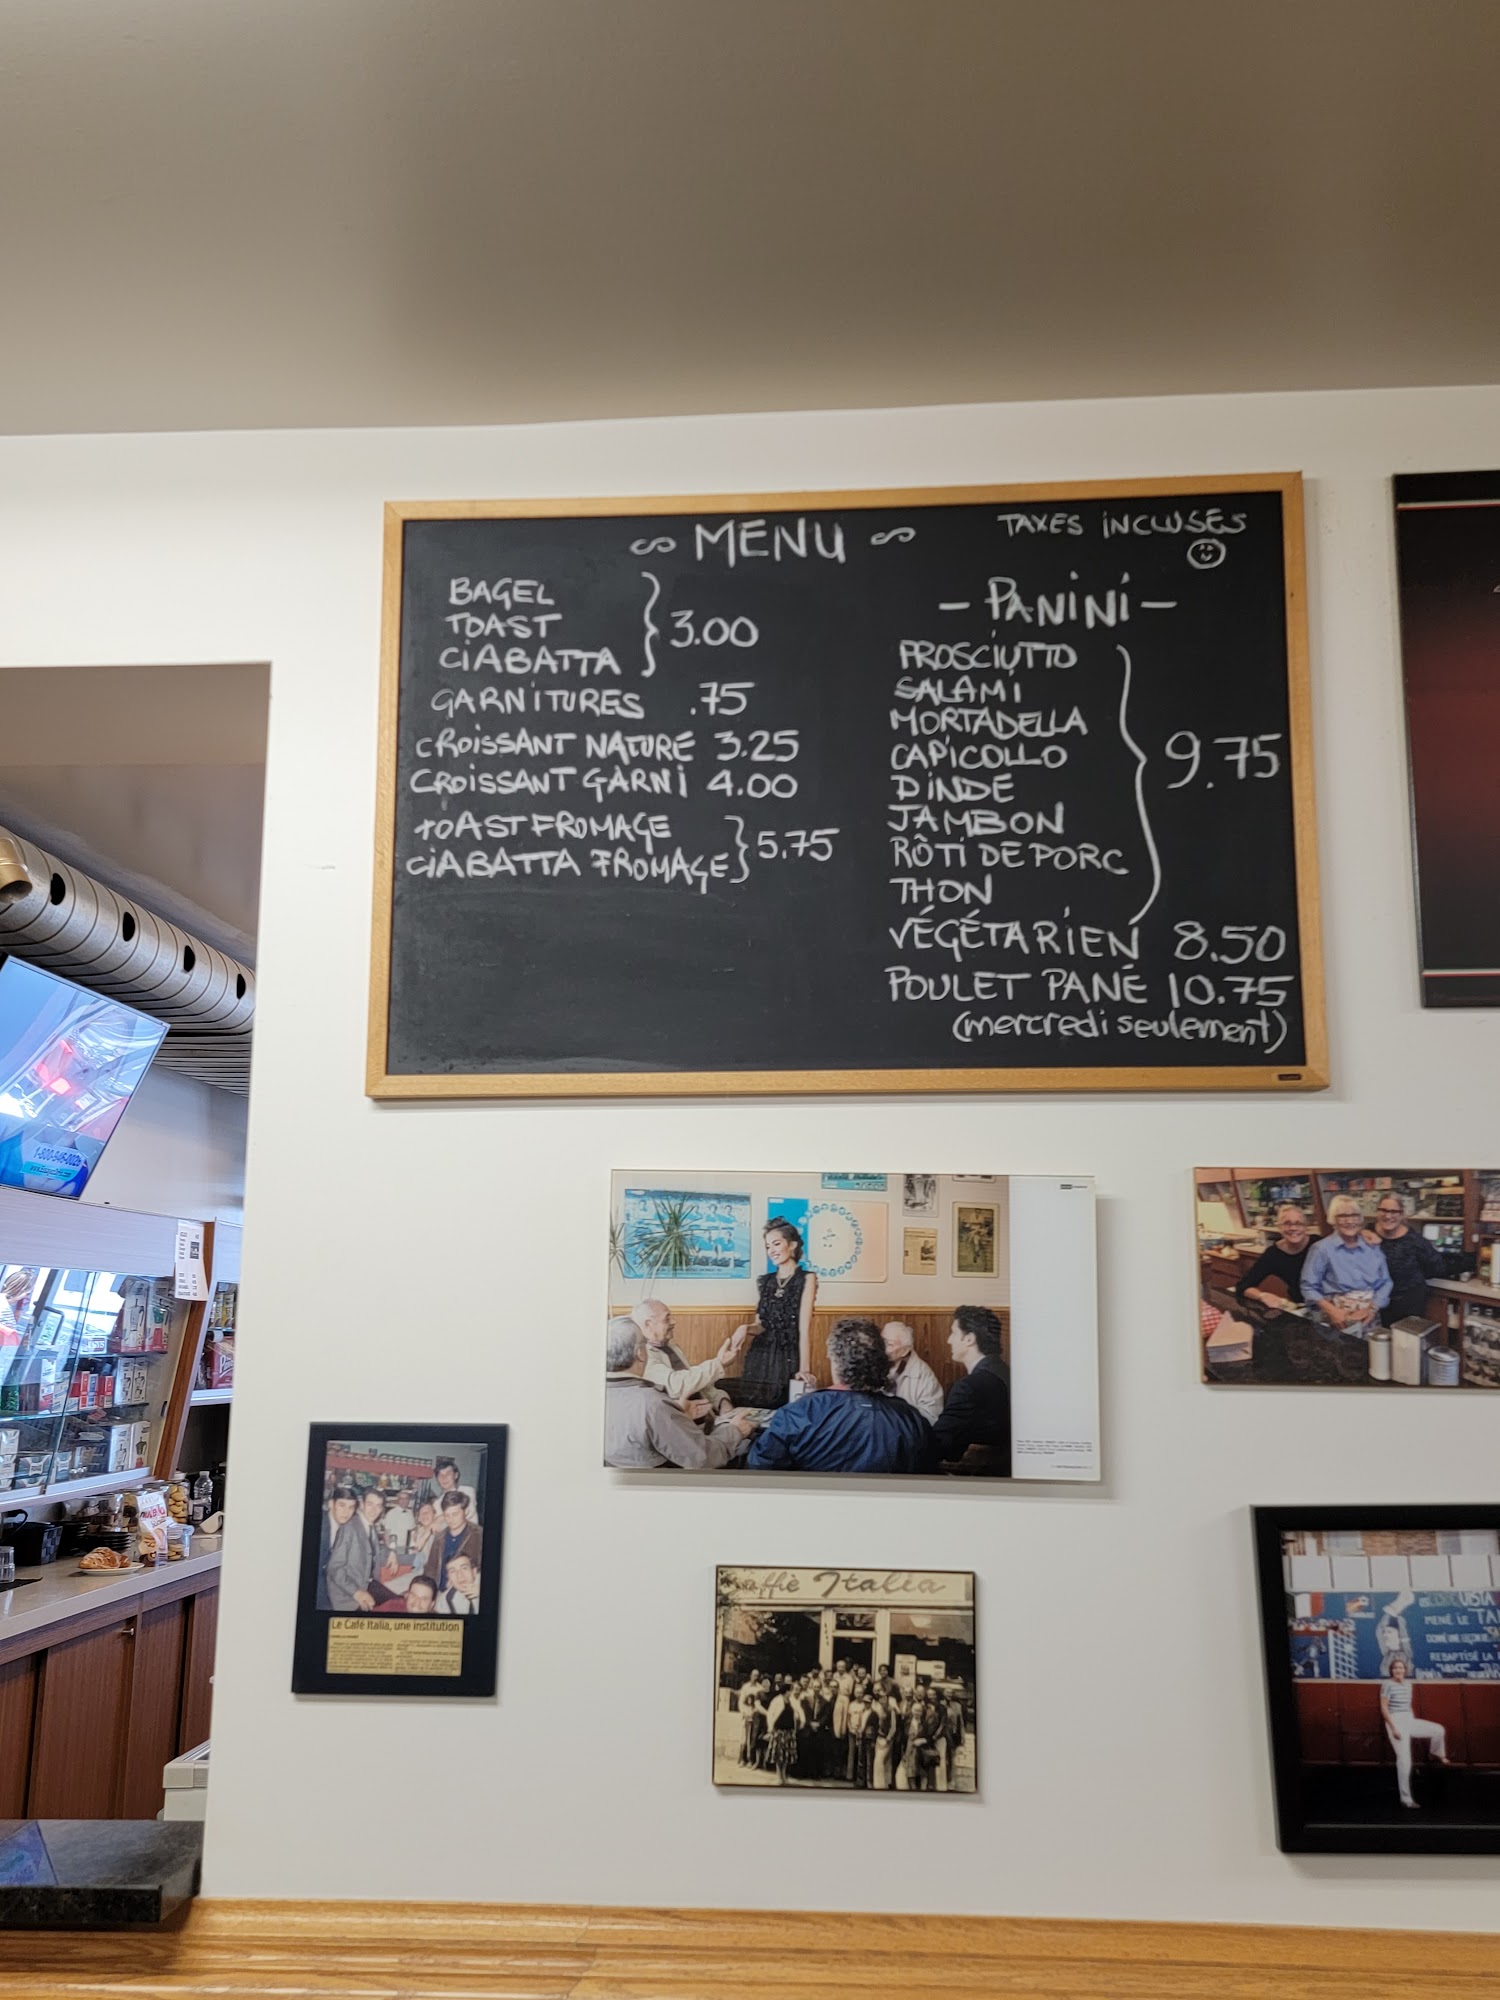 MENU
TAXES INCLUSES
BAGEL
TOAST
CIABATTA
3.00
GARNITURES .75
CROISSANT NATURE 3.25
CROISSANT GARNI 4.00
TOAST FROMAGE
CIABATTA FROMAGE
5.75
- PANINI -
PROSCIUTTO
SALAMI
MORTADELLA
CAPICOLLO
DINDE
JAMBON
RÔTI DE PORC
THON
9.75
VÉGÉTARIEN 8.50
POULET PANÉ 10.75
(mercredi seulement)
Le Café Italia, une institution
Caffiè Italia
MENÉ LE
REBAPTISÉ LA